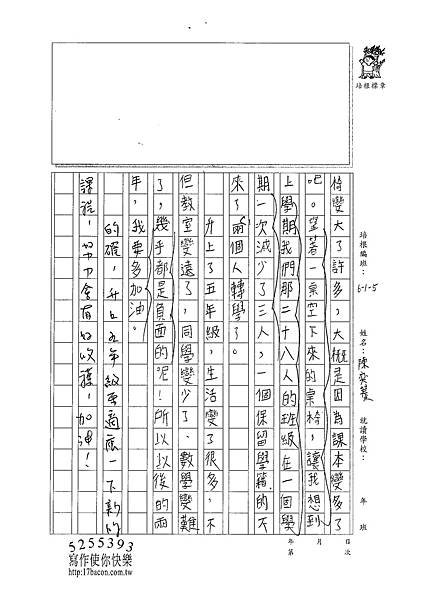 培根標章
培根編班：
5-1-5
姓名：陳奕蓁
就讀學校：
年　班
椅變大了許多，大概是因為課本變多了
吧。望著一桌空下來的桌椅，讓我想到
上學期我們那二十八人的班級在一個學
期一次減少了三人，一個保留學籍的不
來了，兩個人轉學了。
升上了五年級，生活變了很多，不
但教室變遠了，同學變少了、數學變難
了，幾乎都是負面的呢！所以以後的兩
年，我要多加油。
的確，升上五年級要適應一下新的
課程，努力會有好收穫，加油！
年　月　日
第　次
5255393
寫作使你快樂
http://17bacon.com.tw